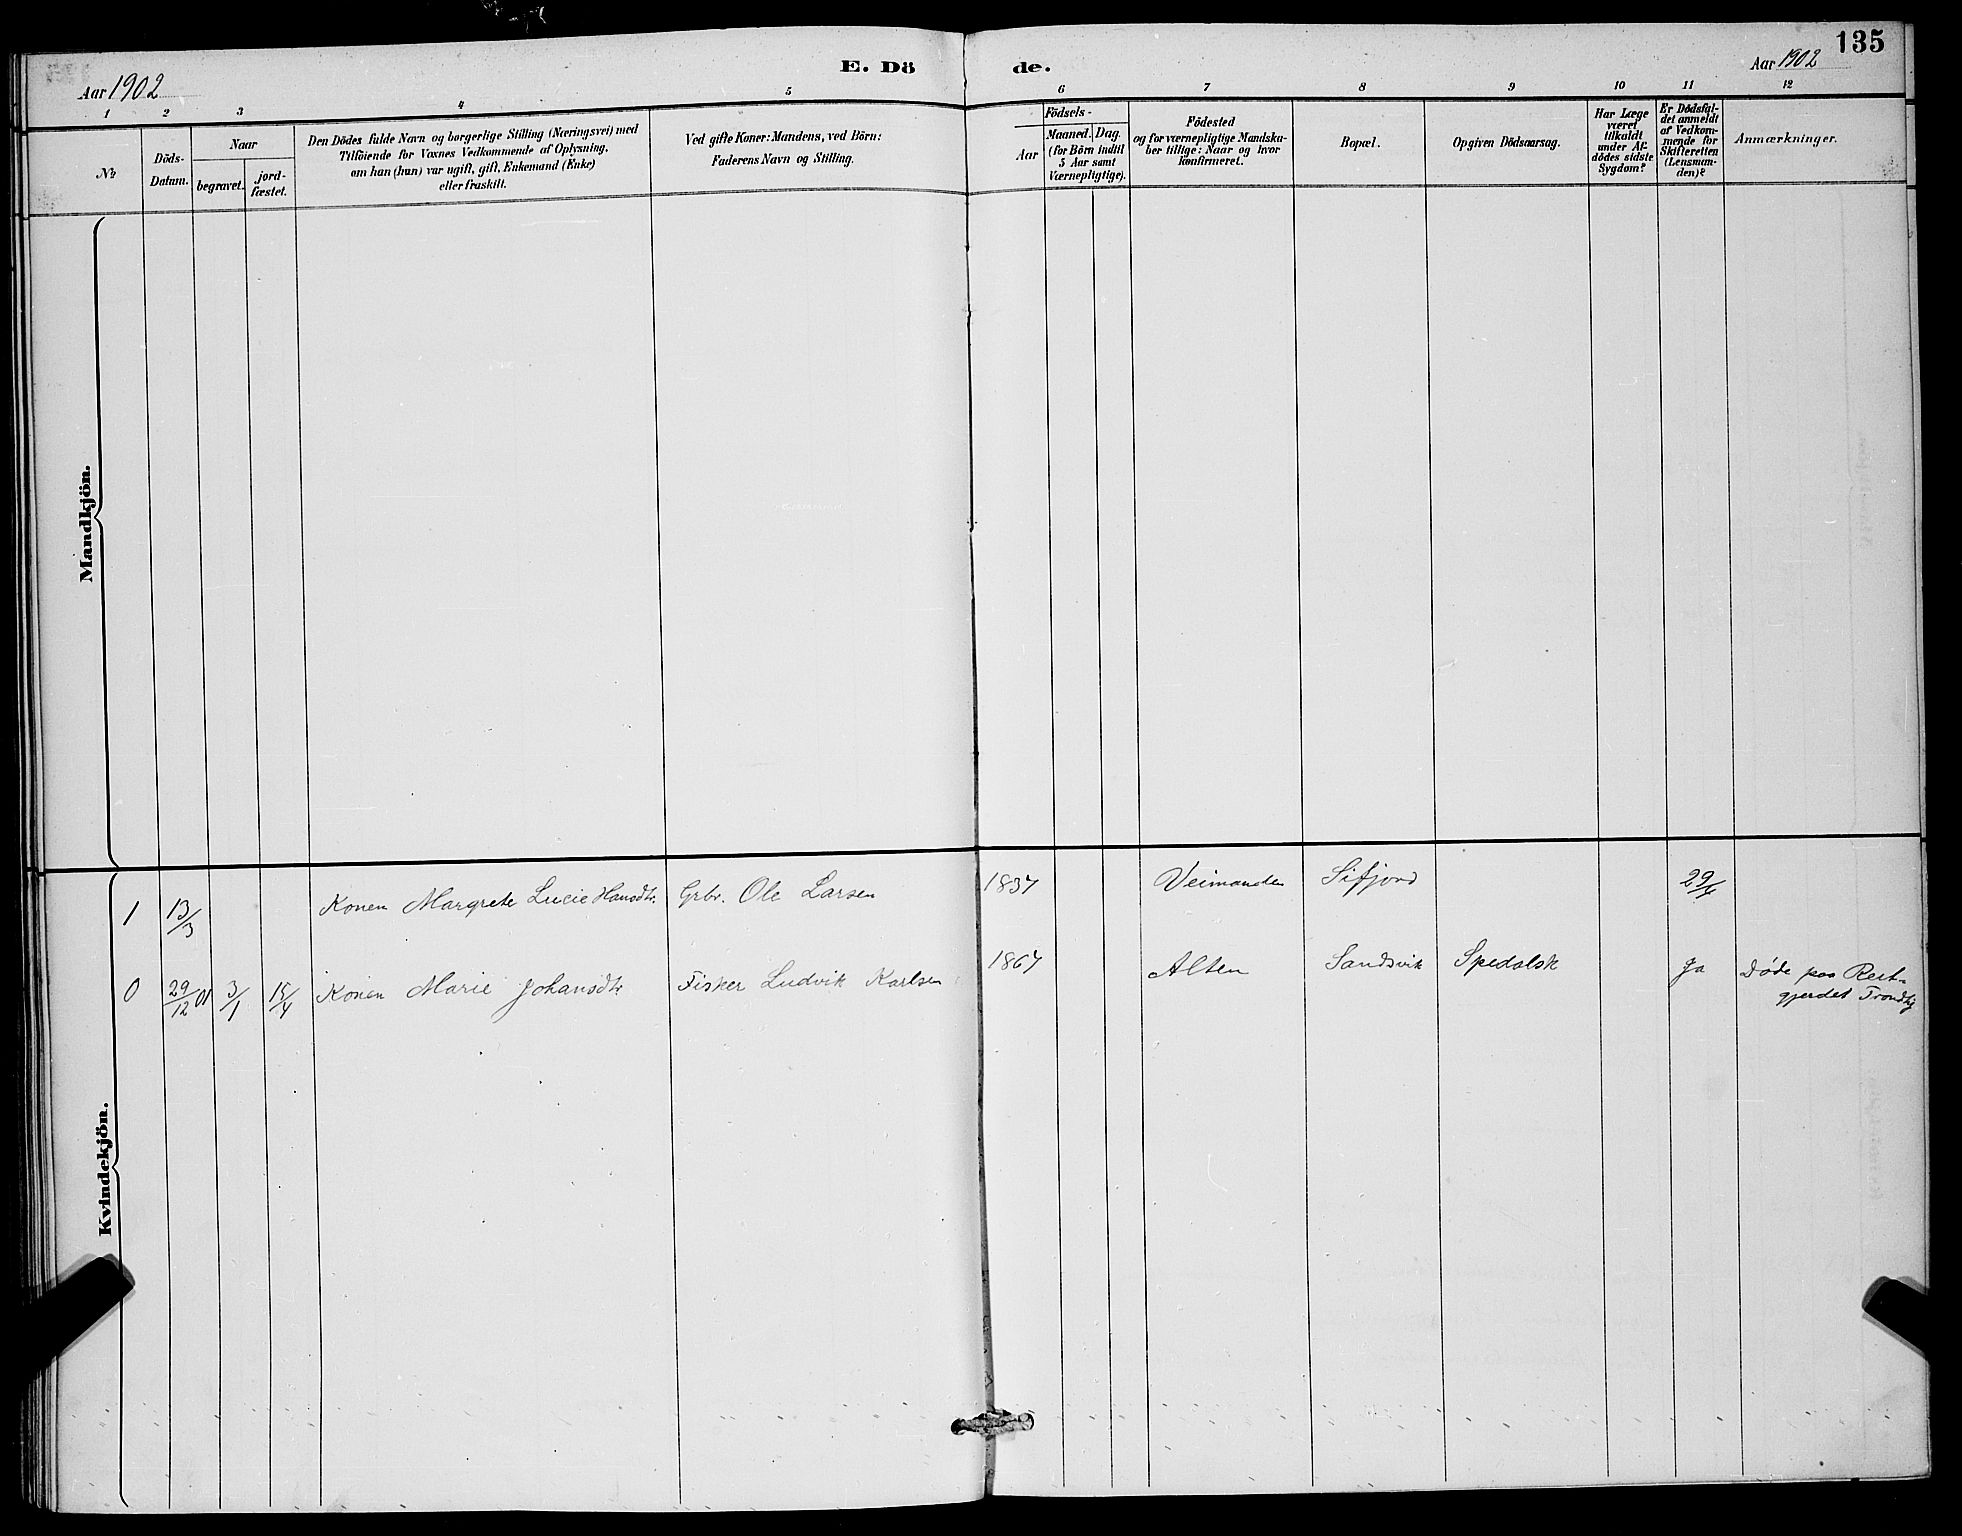 135
E. Dö de.
Aar 1902
Aar 1902
1 2 3 4 5 6 7 8 9 10 11 12
No
Döds-
Datum.
Naar
begravet.
jord-
fæstet.
Den Dödes fulde Navn og borgerlige Stilling (Næringsvei) med
Tilföiende for Voxnes Vedkommende af Oplysning,
om han (hun) var ugift, gift, Enkemand (Enke)
eller fraskilt.
Ved gifte Koner: Mandens, ved Börn:
Faderens Navn og Stilling.
Födsels-
Aar
Maaned. Dag.
(for Börn indtil
5 Aar samt
Værnepligtige).
Födested
og for værnepligtige Mandska-
ber tillige: Naar og hvor
konfirmeret.
Bopæl.
Opgiven Dödsaarsag.
Har Læge
været
tilkaldt
under Af-
dödes sidste
Sygdom?
Er Dödsfal-
det anmeldt
af Vedkom-
mende for
Skifteretten
(Lensman-
den)?
Anmærkninger.
Mandkjön.
Kvindekjön.
1 13/3 Konen Margrete Lucie Hansdtr. Grbr. Ole Larsen 1837 Veimanden Sifjord 29/4
0 29/12 01 3/1 15/4 Konen Marie Johansdtr Fisker Ludvik Karlsen 1867 Alten Sandsvik Spedalsk Ja Døde paa Reit-
gjerdet Trondhj